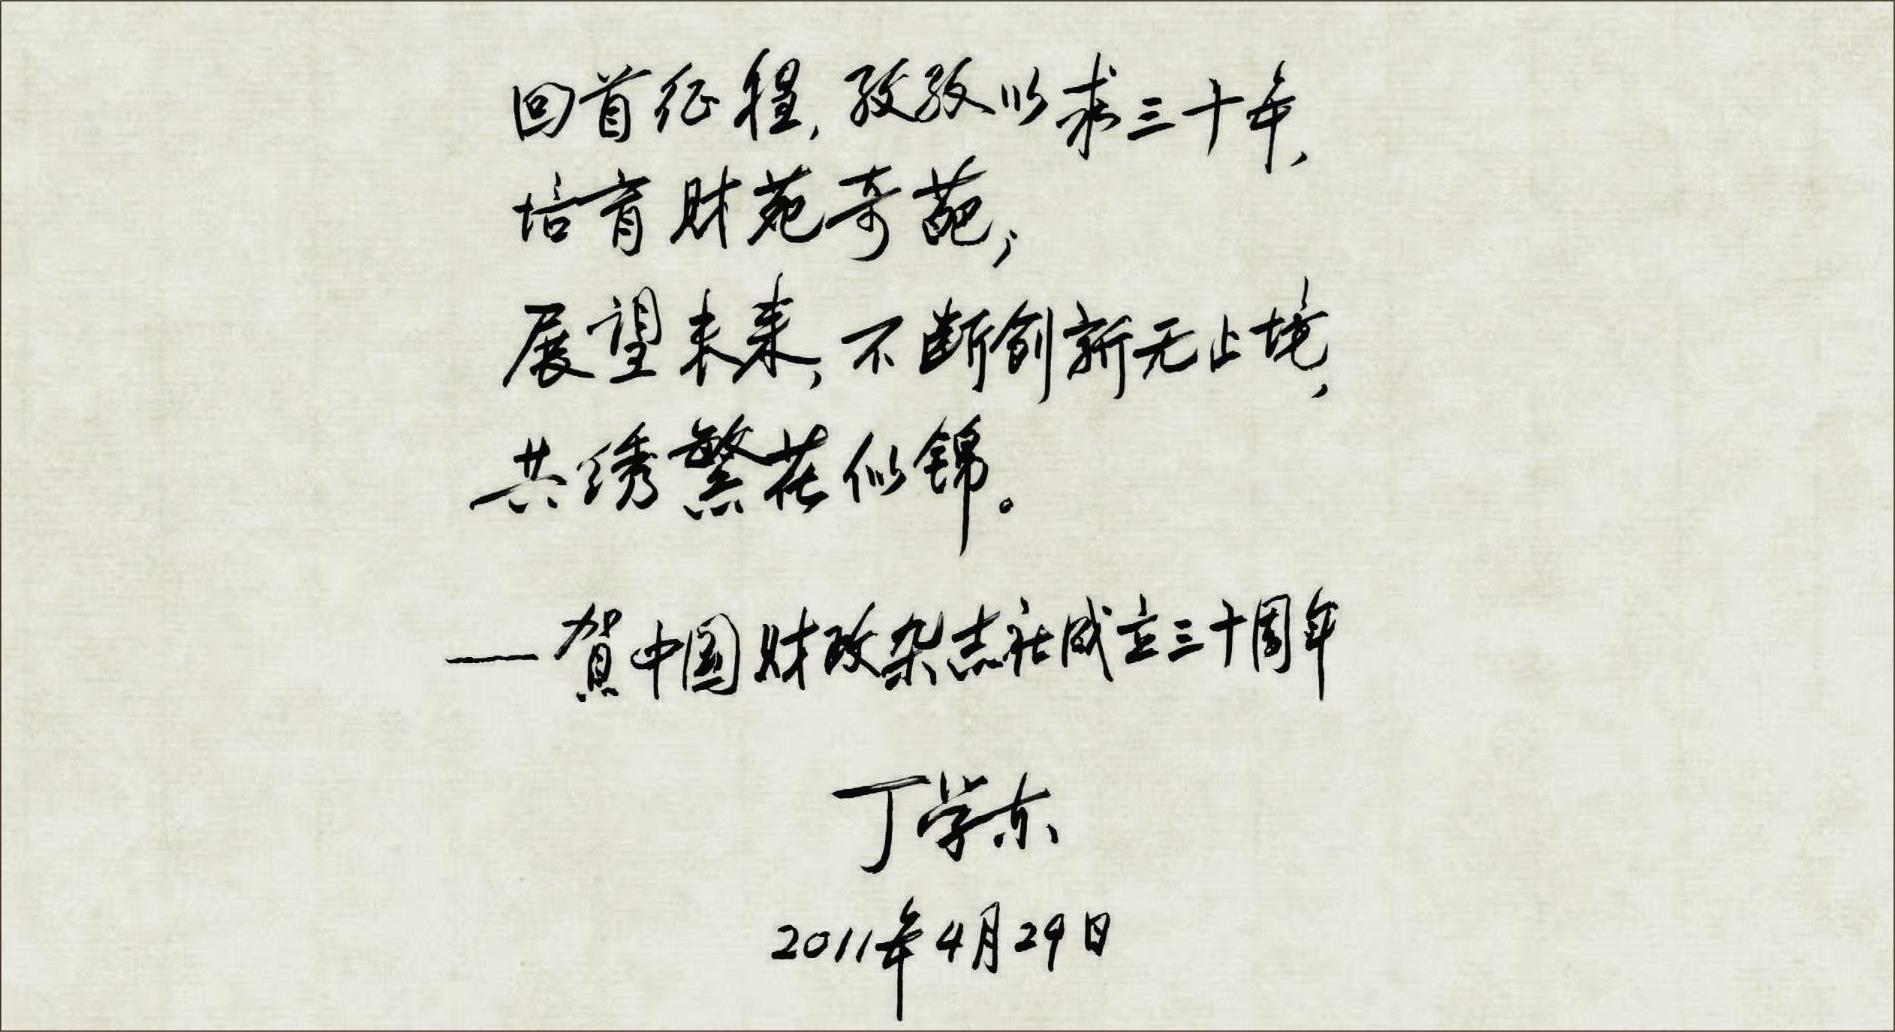 回首征程，孜孜以求三十年，
培育财苑奇葩；
展望未来，不断创新无止境，
共绣繁花似锦。
——贺中国财政杂志社成立三十周年
丁学东
2011年4月29日